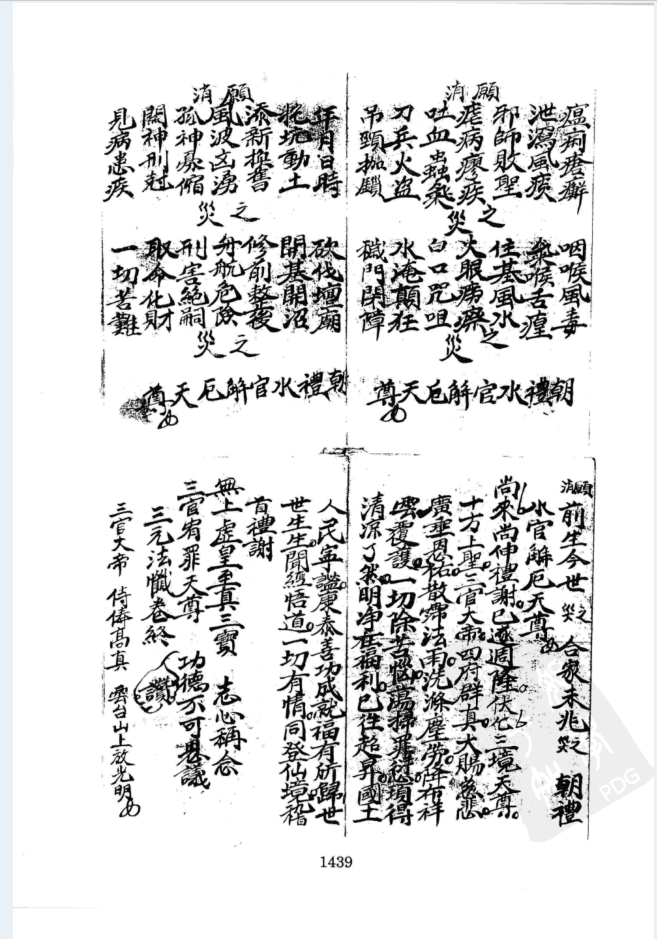 願消
瘟痢瘡癬 咽喉風毒
泄瀉風痰 喉舌
邪師敗聖 住基風水
瘧病疾 火眼癆瘵
吐血蟲 白口咒咀
刀兵火盜 水淹顛狂
吊頸枷鎖 門閉障
之災 之災
朝禮水官解厄天尊
願消
年月日時 砍伐壇廟
挖坑動土 開基開沼
添新換舊 修前整後
風波凶湧 舟航危險
孤神寡宿 刑害絕嗣
關神刑剋 取命化財
見病患疾 一切苦難
之災 之災
朝禮水官解厄天尊
願消 前生今世之災 合家未兆之災 朝禮
水官解厄天尊
尚來尚伸禮謝已遂週隆伏化三境天尊
十方上聖三官大帝四府群真大賜慈悲
廣垂恩佑散霈法雨洗滌塵勞降布祥
雲覆護一切除苦惱蕩掃罪愆頃得
清涼了然明淨在福利已往超昇國土
人民寧謐康泰善功成就福有所歸世
世生生聞經悟道一切有情同登仙境稽
首禮謝
無上虛皇至真三寶 志心稱念
三官宥罪天尊 功德不可思議
三元法懺卷終 讚
三官大帝 侍俸高真 雲台山上放光明
1439
PDG